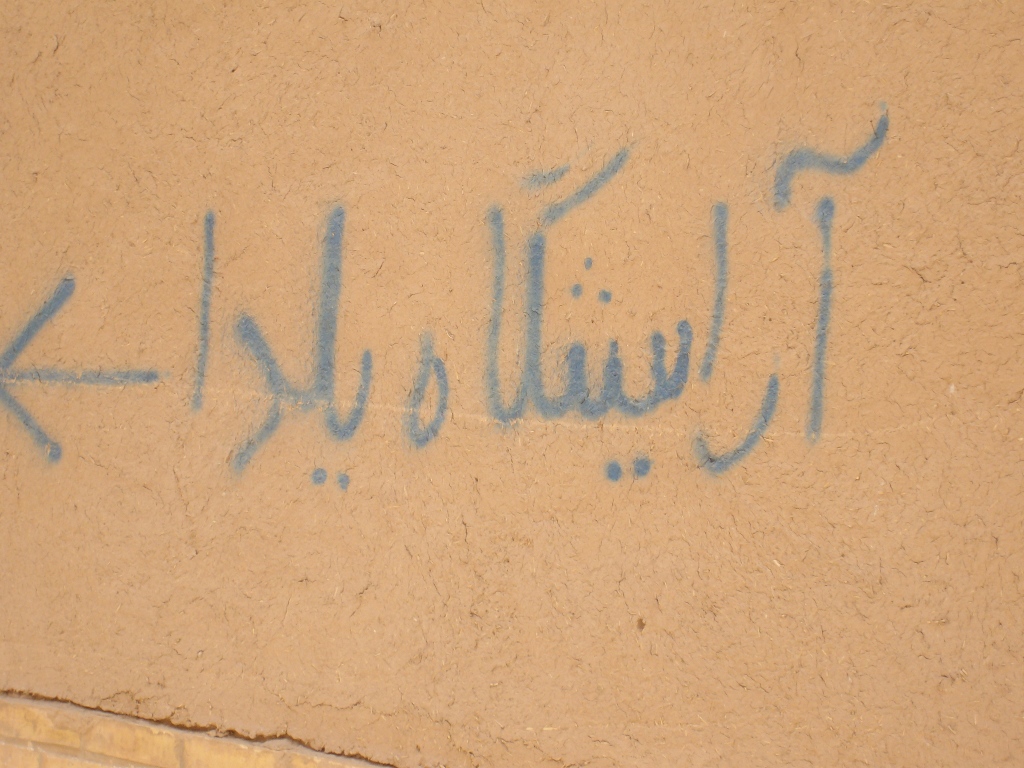 آرایشگاه یلدا